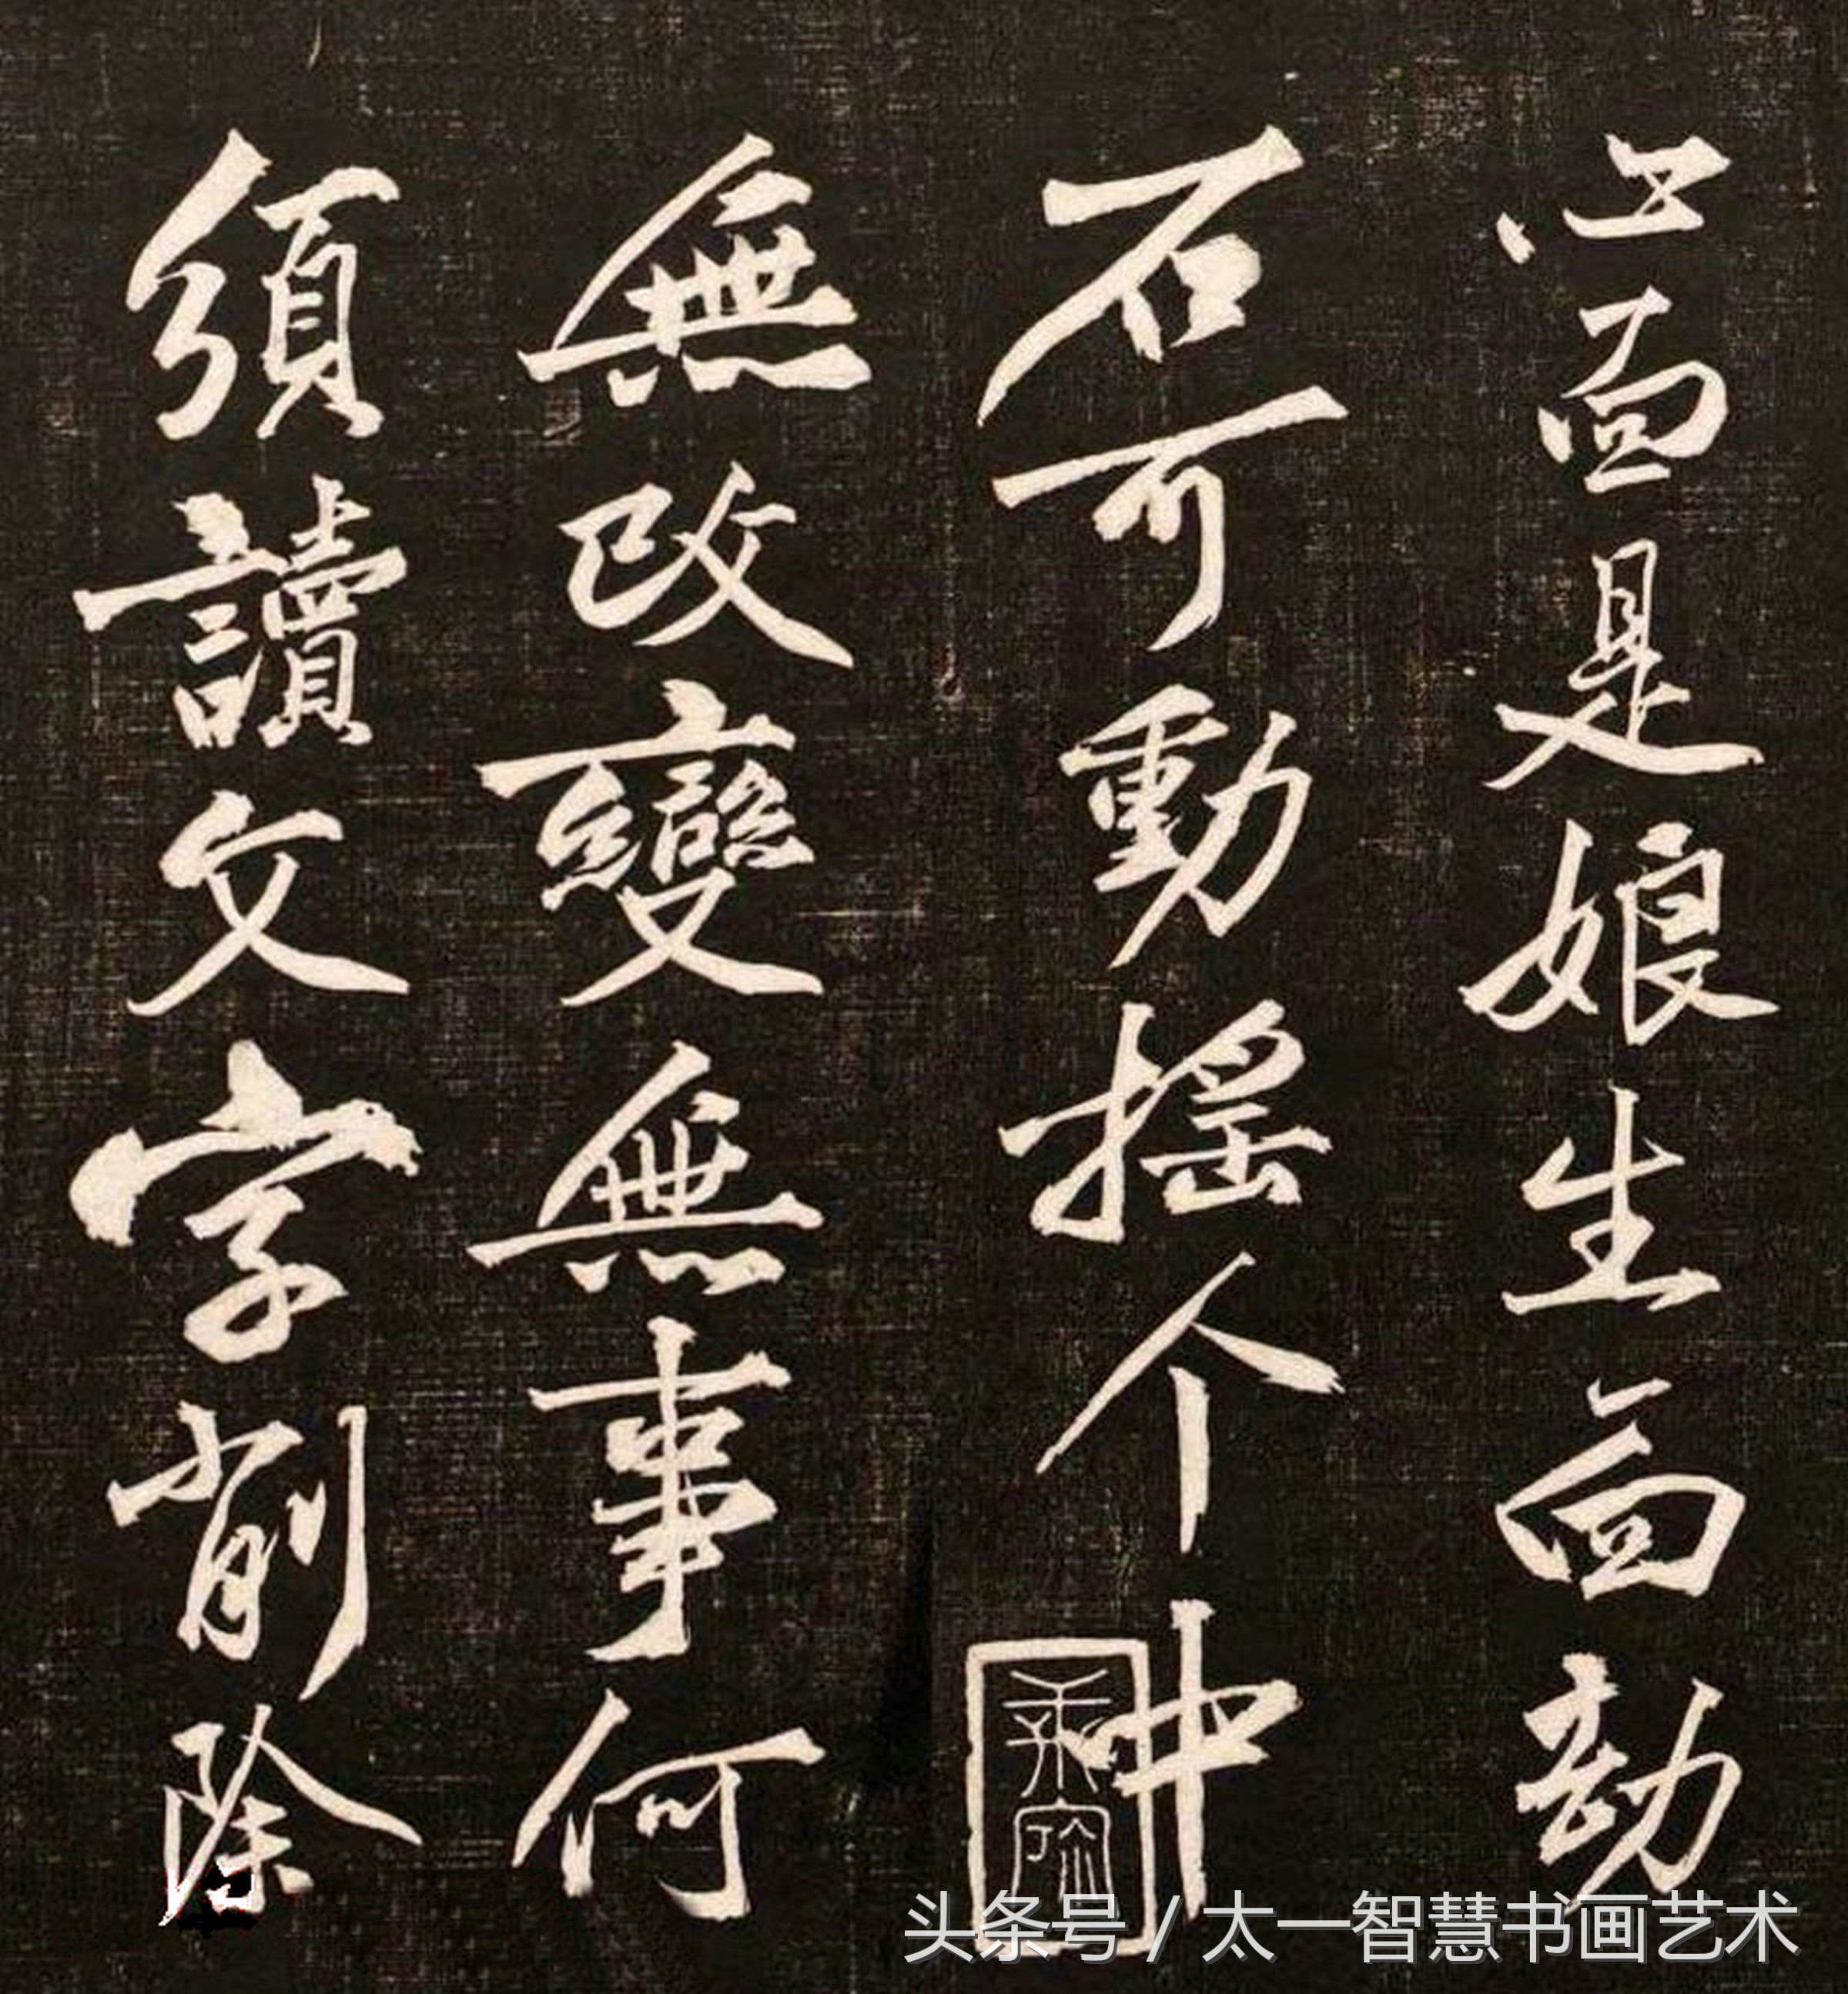 面是娘生面劫
石可動搖个中
無改變無事何
須讀文字削除
头条号 / 太一智慧书画艺术